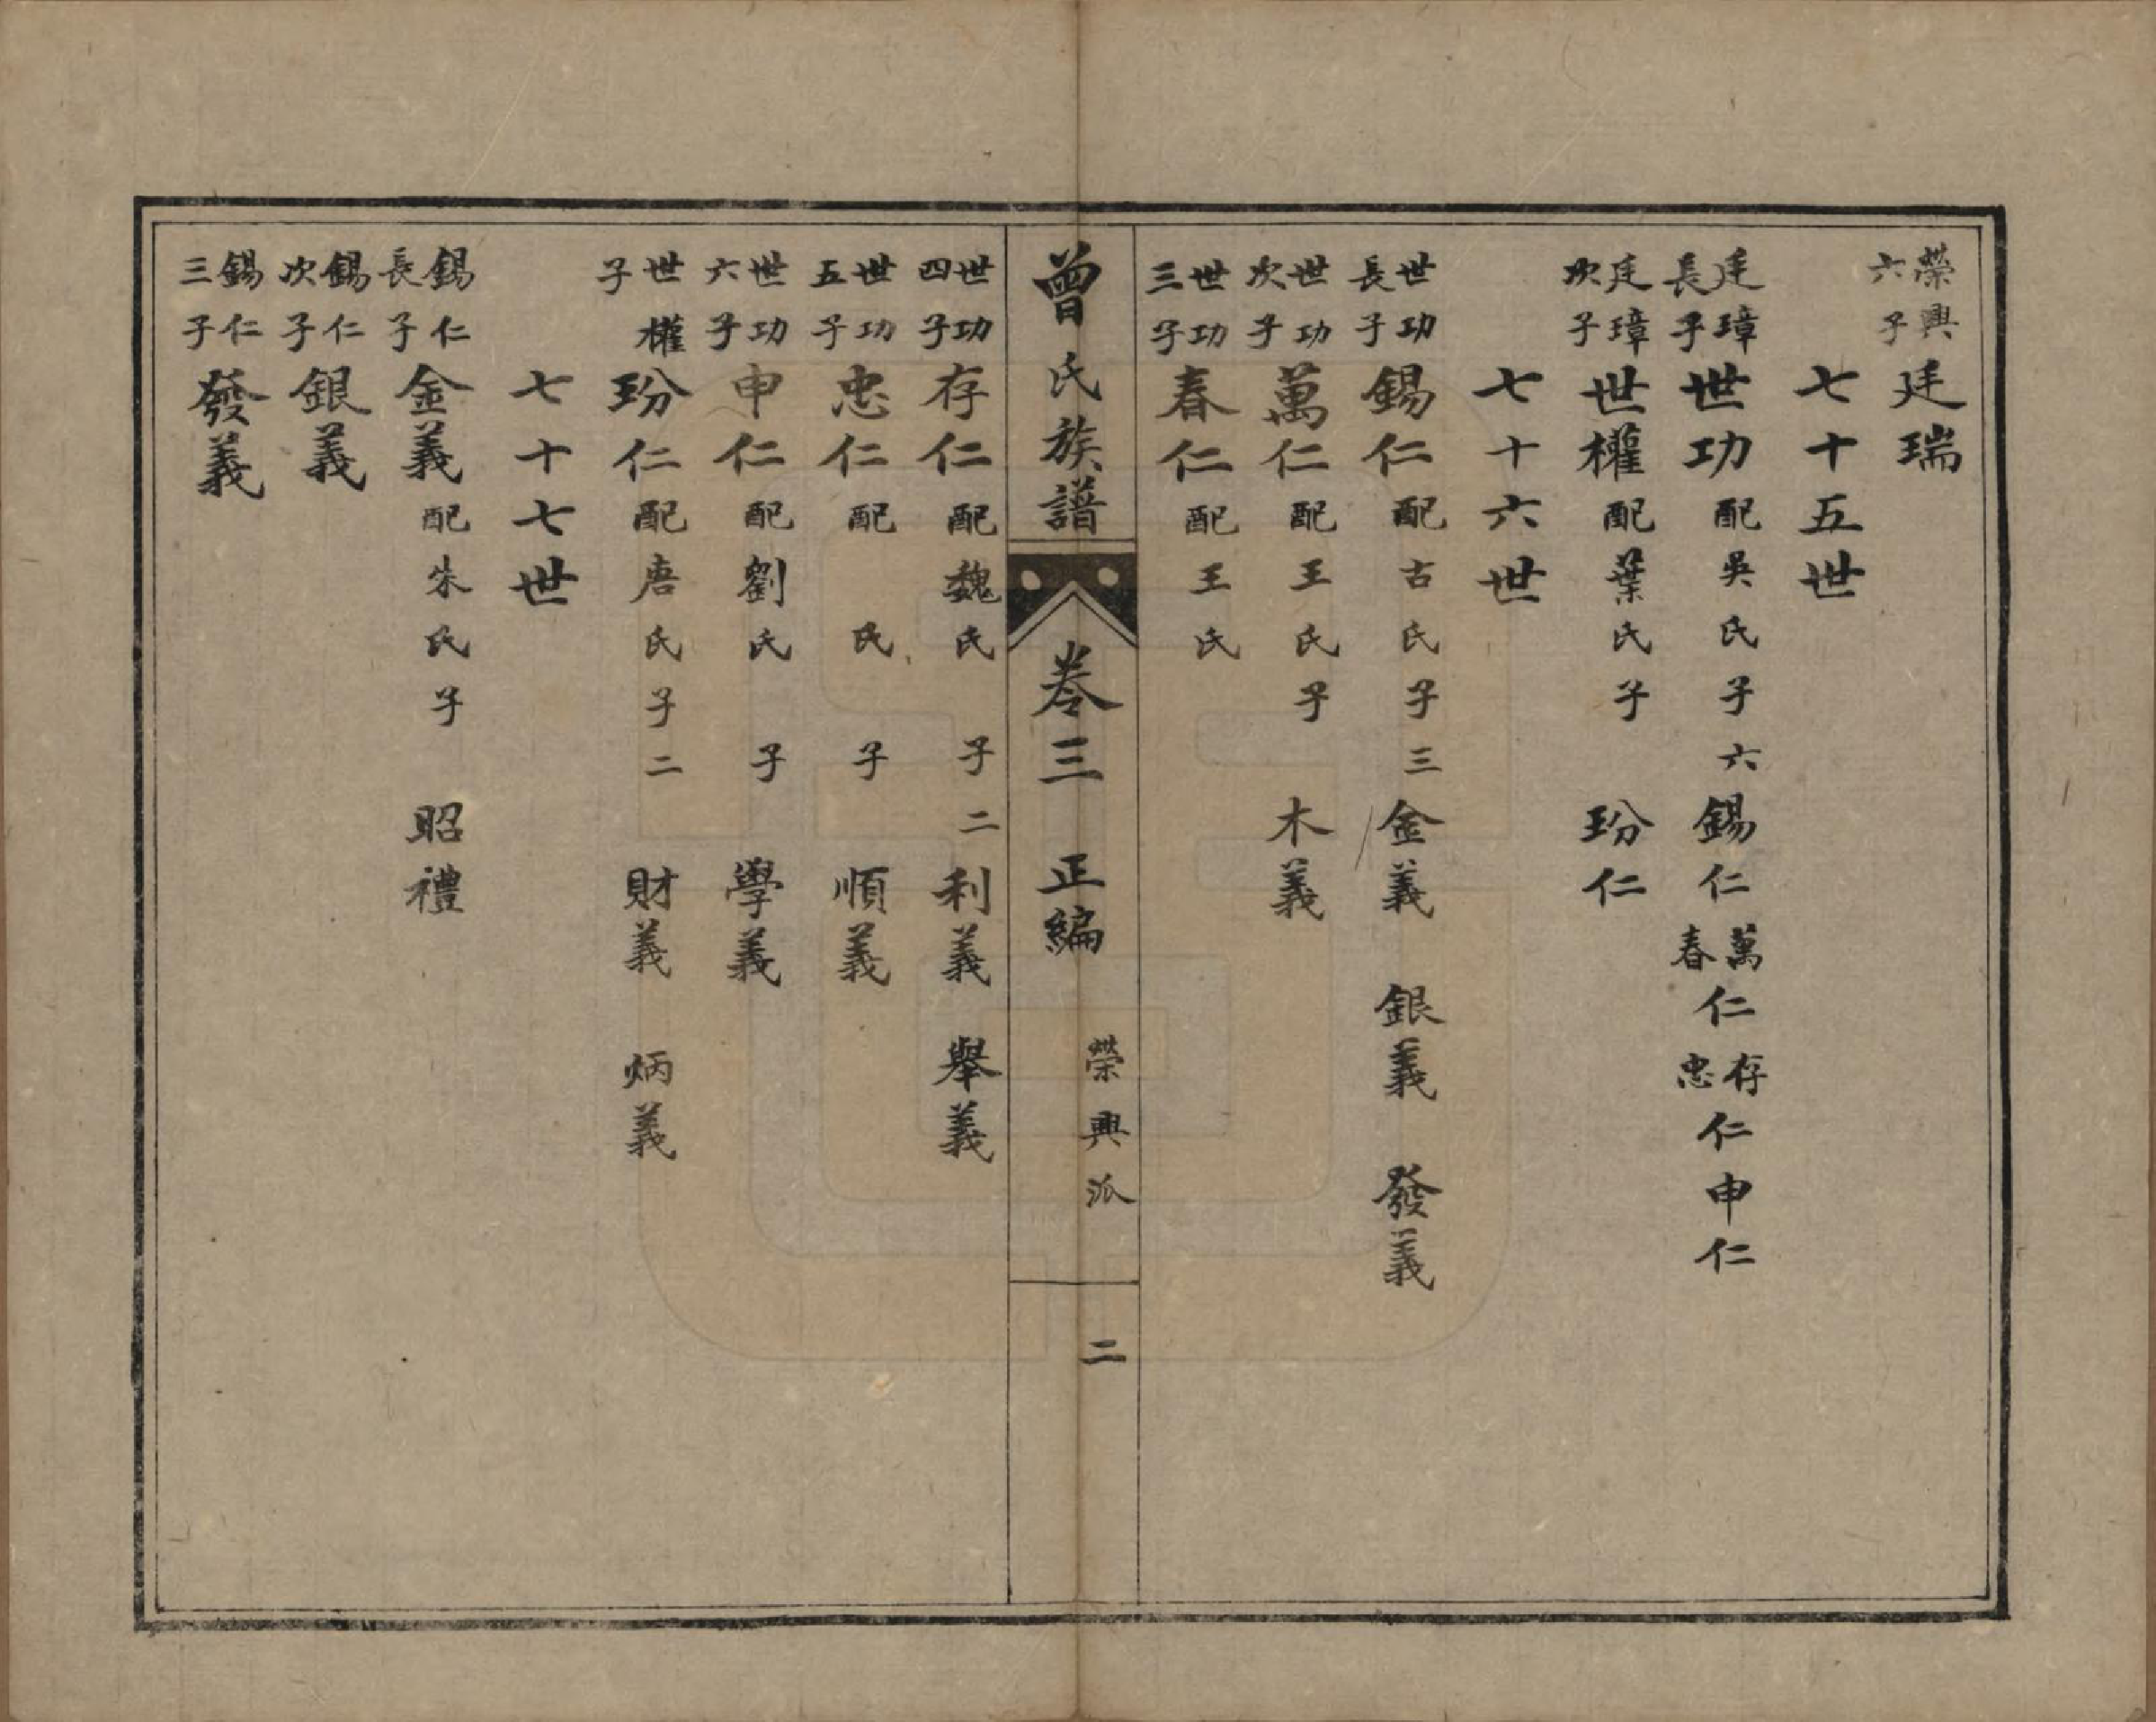 榮興六子廷瑞
七十五世
廷璋長子世功配吳氏子六錫仁萬春仁存忠仁申仁
廷璋次子世權配葉氏子玢仁
七十六世
世功長子錫仁配古氏子三金義銀義發義
世功次子萬仁配王氏子木義
世功三子春仁配王氏
曾氏族譜卷三正編榮興派二
世功四子存仁配魏氏子二利義舉義
世功五子忠仁配氏子順義
世功六子申仁配劉氏子學義
世權子玢仁配唐氏子二財義炳義
七十七世
錫仁長子金義配朱氏子昭禮
錫仁次子銀義
錫仁三子發義